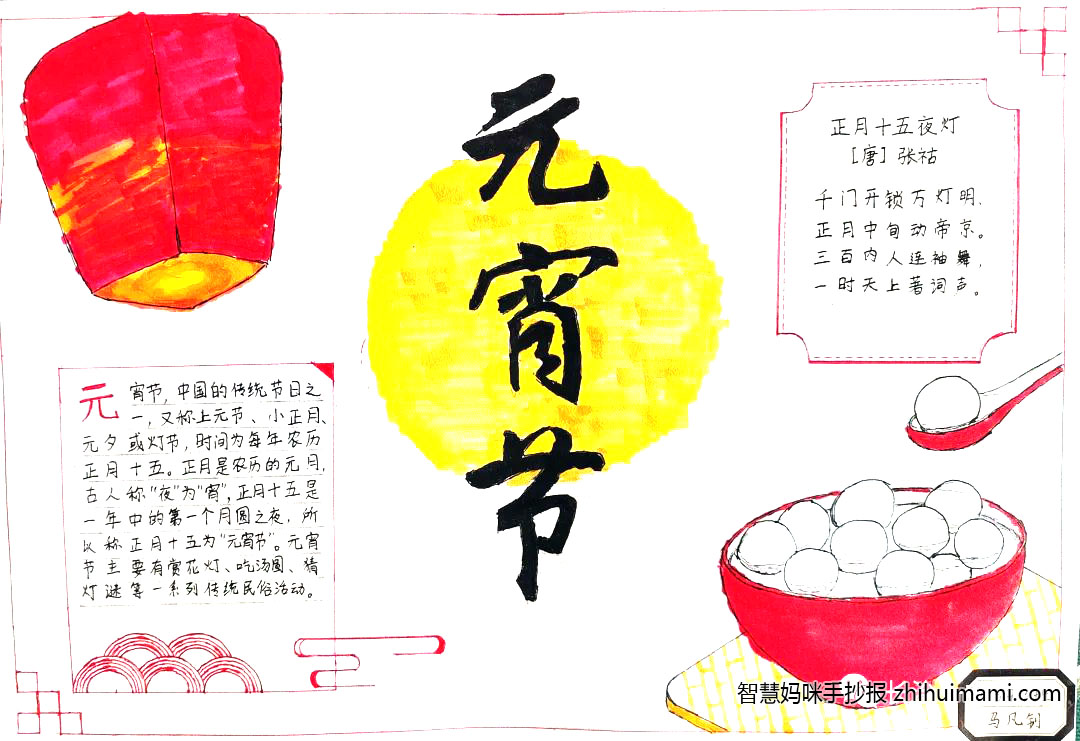 元
宵
节
正月十五夜灯
[唐] 张祜
千门开锁万灯明，
正月中旬动帝京。
三百内人连袖舞，
一时天上著词声。
元宵节，中国的传统节日之
一，又称上元节、小正月、
元夕或灯节，时间为每年农历
正月十五。正月是农历的元月，
古人称“夜”为“宵”，正月十五是
一年中的第一个月圆之夜，所
以称正月十五为“元宵节”。元宵
节主要有赏花灯、吃汤圆、猜
灯谜等一系列传统民俗活动。
智慧妈咪手抄报 zhihuimami.com
马凡钊